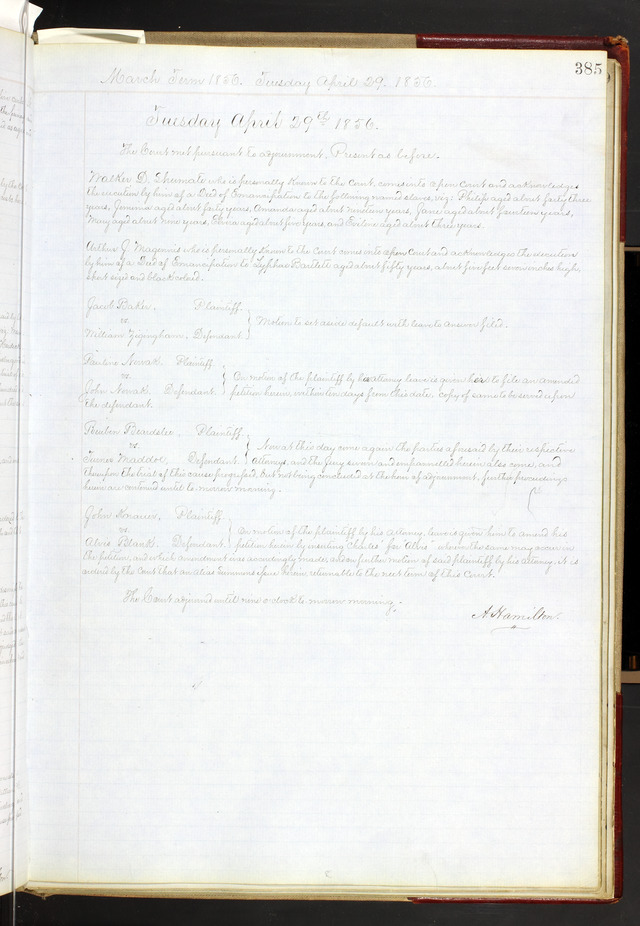 385
March Term 1856. Tuesday April 29. 1856.
Tuesday April 29th 1856.
The Court met pursuant to adjournment, Present as before.
Walker D. Shumate who is personally known to the Court, comes into open Court and acknowledges
the execution by him of a Deed of Emancipation to the following named slaves, viz: Philip aged about forty three
years, Jemima aged about forty years, Amanda aged about nineteen years, Jane aged about fourteen years,
Mary aged about nine years, aged about five years, and Eveline aged about three years.
Arthur J. Magennis who is personally known to the Court comes into open Court and acknowledges the execution
by him of a Deed of Emancipation to Bartlett aged about fifty years, about five feet seven inches high,
stout sized and black colored.
Jacob Baker, Plaintiff
vs.
William , Defendant } Motion to set aside default with leave to answer filed.
Pauline Nowak Plaintiff
vs. } On motion of the plaintiff by his attorney leave is given her to file an amended
John Nowak. Defendant. petition herein within ten days from this date. copy of same to be served upon
the defendant.
Reuben Beardslee, Plaintiff
vs. } Now at this day come again the parties aforesaid by their respective
Turner Maddox, Defendant. attorneys, and the jury sworn and empannelled herein also come, and
thereupon the trial of this cause progressed, but not being concluded at the hour of adjournment, further proceedings
herein are continued until to morrow morning.
John Knauer, Plaintiff
vs. } On motion of the plaintiff by his attorney, leave is given him to amend his
Alvis Blank. Defendant. petition herein by inserting for "Alvis" wherever the same may occur in
the petition, and which amendment was accordingly made, and on further motion of said plaintiff by his attorney, it is
ordered by the Court that an alias summons issue herein returnable to the next term of this Court.
The Court adjourned until nine o clock to morrow morning.
A. Hamilton.